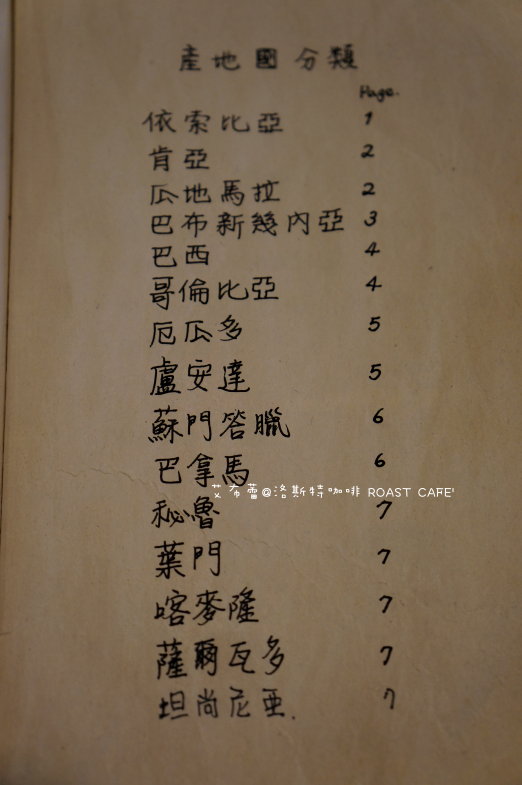 產地國分類
Page.
依索比亞 1
肯亞 2
瓜地馬拉 2
巴布新幾內亞 3
巴西 4
哥倫比亞 4
厄瓜多 5
盧安達 5
蘇門答臘 6
巴拿馬 6
秘魯 7
葉門 7
喀麥隆 7
薩爾瓦多 7
坦尚尼亞. 7
艾布雷@洛斯特咖啡 ROAST CAFE'